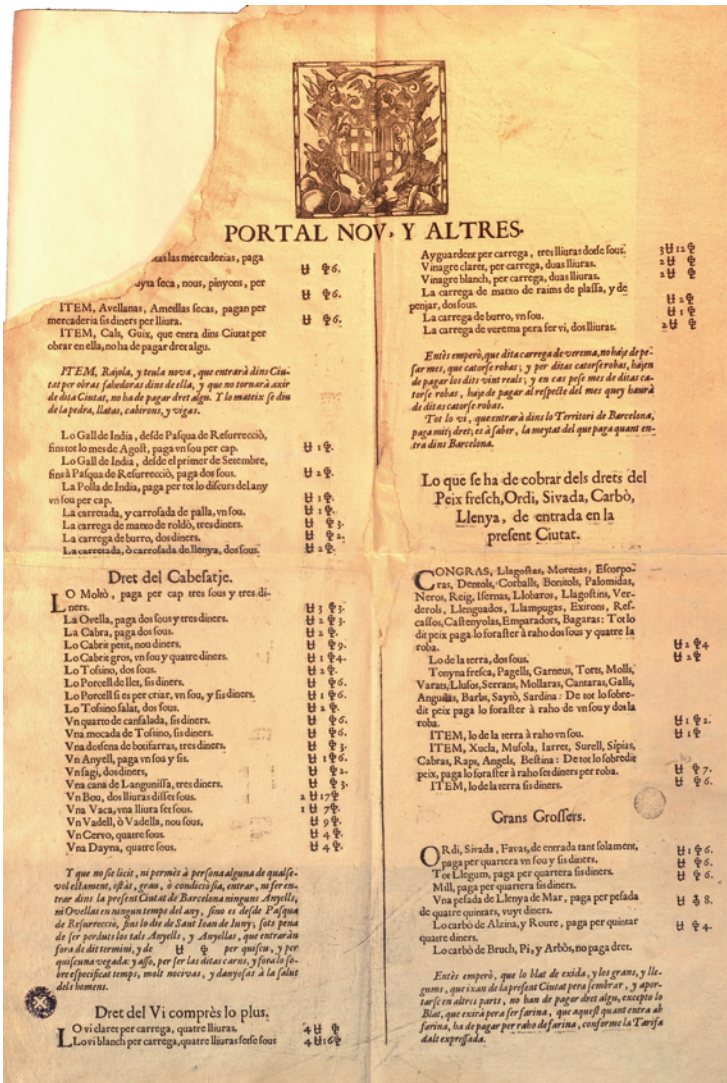 PORTAL NOV, Y ALTRES.
las mercaderias, paga
ꝉ ꝕ6.
seca, nous, pinyons, per
ꝉ ꝕ6.
ITEM, Avellanas, Amellas secas, pagan per
mercaderia sis diners per lliura. ꝉ ꝕ6.
ITEM, Cals, Guix, que entra dins Ciutat per
obrar en ella, no ha de pagar dret algu.
ITEM, Rajola, y teula nova, que entrarà dins Ciu-
tat per obras fahedoras dins de ella, y que no tornarà axir
de dita Ciutat, no ha de pagar dret algu. Y lo mateix se diu
de la pedra, llatas, cabirons, y vigas.
Lo Gall de India, desde Pasqua de Resurrecciò,
fins tot lo mes de Agost, paga vn sou per cap. ꝉ 1ꝕ.
Lo Gall de India, desde el primer de Setembre,
fins à Pasqua de Resurrecciò, paga dos sous. ꝉ 2ꝕ.
La Polla de India, paga per tot lo discurs del any
vn sou per cap. ꝉ 1ꝕ.
La carretada, y carrosada de palla, vn sou. ꝉ 1ꝕ.
La carrega de matxo de roldò, tres diners. ꝉ ꝕ3.
La carrega de burro, dos diners. ꝉ ꝕ2.
La carretada, ò carrosada de llenya, dos sous. ꝉ 2ꝕ.
Dret del Cabesatje.
LO Moltò, paga per cap tres sous y tres di-
ners. ꝉ 3ꝕ3.
La Ovella, paga dos sous y tres diners. ꝉ 2ꝕ3.
La Cabra, paga dos sous. ꝉ 2ꝕ.
Lo Cabrit petit, nou diners. ꝉ ꝕ9.
Lo Cabrit gros, vn sou y quatre diners. ꝉ 1ꝕ4.
Lo Tossino, dos sous. ꝉ 2ꝕ.
Lo Porcell de llet, sis diners. ꝉ ꝕ6.
Lo Porcell si es per criar, vn sou, y sis diners. ꝉ 1ꝕ6.
Lo Tossino salat, dos sous. ꝉ 2ꝕ.
Vn quarto de cansalada, sis diners. ꝉ ꝕ6.
Vna mocada de Tossino, sis diners. ꝉ ꝕ6.
Vna dotsena de botifarras, tres diners. ꝉ ꝕ3.
Vn Anyell, paga vn sou y sis. ꝉ 1ꝕ6.
Vn sagi, dos diners, ꝉ ꝕ2.
Vna cana de Llangunissa, tres diners. ꝉ ꝕ3.
Vn Bou, dos lliuras disset sous. 2ꝉ17ꝕ
Vna Vaca, vna lliura set sous. 1ꝉ 7ꝕ.
Vn Vadell, ò Vadella, nou sous, ꝉ 9ꝕ.
Vn Cervo, quatre sous. ꝉ 4ꝕ.
Vna Dayna, quatre sous. ꝉ 4ꝕ.
Y que no sie licit, ni permès à persona alguna de qualse-
vol estament, estàt, grau, ò condiciò sia, entrar, ni fer en-
trar dins la present Ciutat de Barcelona ninguns Anyells,
ni Ovellas en ningun temps del any, sino es desde Pasqua
de Resurrecciò, fins lo die de Sant Ioan de Iuny; sots pena
de ser perduts los tals Anyells, y Anyellas, que entraràn
fora de dit termini, y de ꝉ ꝕ per quiscu, y per
quiscuna vegada: y asso, per ser las ditas carns, y fora lo so-
bre especificat temps, molt nocivas, y danyosas à la salut
dels homens.
Dret del Vi comprès lo plus.
LO vi claret per carrega, quatre lliuras. 4ꝉ ꝕ
Lo vi blanch per carrega, quatre lliuras setse sous 4ꝉ16ꝕ
Ayguardent per carrega, tres lliuras dotse sous. 3ꝉ12ꝕ
Vinagre claret, per carrega, duas lliuras. 2ꝉ ꝕ
Vinagre blanch, per carrega, duas lliuras. 2ꝉ ꝕ
La carrega de matxo de raims de plassa, y de
penjar, dos sous. ꝉ 2ꝕ
La carrega de burro, vn sou. ꝉ 1ꝕ
La carrega de verema pera ser vi, dos lliuras. 2ꝉ ꝕ
Entès emperò, que dita carrega de verema, no haje de pe-
sar mes, que catorse robas; y per ditas catorse robas, hajen
de pagar los dits vint reals; y en cas pese mes de ditas ca-
torse robas, haje de pagar al respecte del mes quey haurà
de ditas catorse robas.
Tot lo vi, que entrarà dins lo Territori de Barcelona,
paga mitj dret; es à saber, la meytat del que paga quant en-
tra dins Barcelona.
Lo que se ha de cobrar dels drets del
Peix fresch, Ordi, Sivada, Carbò,
Llenya, de entrada en la
present Ciutat.
CONGRAS, Llagostas, Morenas, Escorpo-
ras, Dentols, Corballs, Bonitols, Palomidas,
Neros, Reig, Isernas, Llobaros, Llagostins, Ver-
derols, Llenguados, Llampugas, Exirons, Res-
cassos, Castenyolas, Emparadors, Bagaras: Tot lo
dit peix paga lo foraster à raho dos sous y quatre la
roba. ꝉ 2ꝕ4
Lo de la terra, dos sous. ꝉ 2ꝕ
Tonyna fresca, Pagells, Garneus, Torts, Molls,
Varats, Llusos, Serrans, Mollaras, Cantaras, Galls,
Anguilas, Barbs, Saytò, Sardina: De tot lo sobre-
dit peix paga lo foraster à raho de vn sou y dos la
roba. ꝉ 1ꝕ2.
ITEM, lo de la terra à raho vn sou. ꝉ 1ꝕ
ITEM, Xucla, Musola, Iarret, Surell, Sipias,
Cabras, Raps, Angels, Bestina: De tot lo sobredit
peix, paga lo foraster à raho set diners per roba. ꝉ ꝕ7.
ITEM, lo de la terra sis diners. ꝉ ꝕ6.
Grans Grossers.
ORdi, Sivada, Favas, de entrada tant solament,
paga per quartera vn sou y sis diners. ꝉ 1ꝕ6.
Tot Llegum, paga per quartera sis diners. ꝉ ꝕ6.
Mill, paga per quartera sis diners. ꝉ ꝕ6.
Vna pesada de Llenya de Mar, paga per pesada
de quatre quintars, vuyt diners. ꝉ ꝕ8.
Lo carbò de Alzina, y Roure, paga per quintar
quatre diners. ꝉ ꝕ4.
Lo carbò de Bruch, Pi, y Arbòs, no paga dret.
Entès emperò, que lo blat de exida, y los grans, y lle-
gums, que ixan de la present Ciutat pera sembrar, y apor-
tarse en altres parts, no han de pagar dret algu, excepto lo
Blat, que exirà pera ser farina, que aquest quant entra ab
farina, ha de pagar per raho de farina, conforme la Tarifa
dalt expressada.